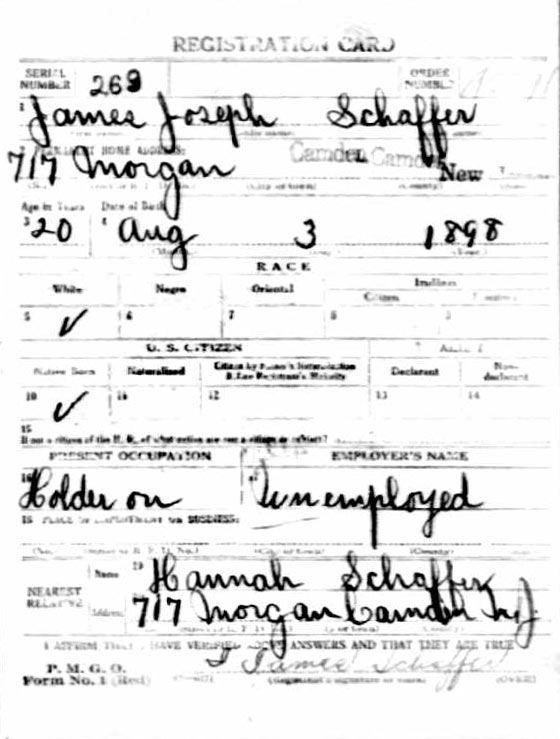 REGISTRATION CARD
SERIAL NUMBER 269 ORDER NUMBER
1 James Joseph Schaffer
2 PERMANENT HOME ADDRESS:
717 Morgan Camden Camden New
Age in Years Date of Birth
3 20 4 Aug 3 1898
RACE
White Negro Oriental Indian
Citizen
5 ✓ 6 7 8 9
U. S. CITIZEN ALIEN
Native Born Naturalized Citizen by Father's Naturalization Before Registrant's Majority Declarant Non-declarant
10 ✓ 11 12 13 14
15
If not a citizen of the U. S., of what nation are you a citizen or subject?
PRESENT OCCUPATION EMPLOYER'S NAME
16 Holder on 17 Unemployed
18 PLACE OF EMPLOYMENT OR BUSINESS:
(No.) (Street or R. F. D. No.) (City or town) (County)
NEAREST RELATIVE Name 19 Hannah Schaffer
Address 717 Morgan Camden N.J
I AFFIRM THAT I HAVE VERIFIED ABOVE ANSWERS AND THAT THEY ARE TRUE
P. M. G. O.
Form No. 1 (Red) James Schaffer
(Registrant's signature or mark) (OVER)